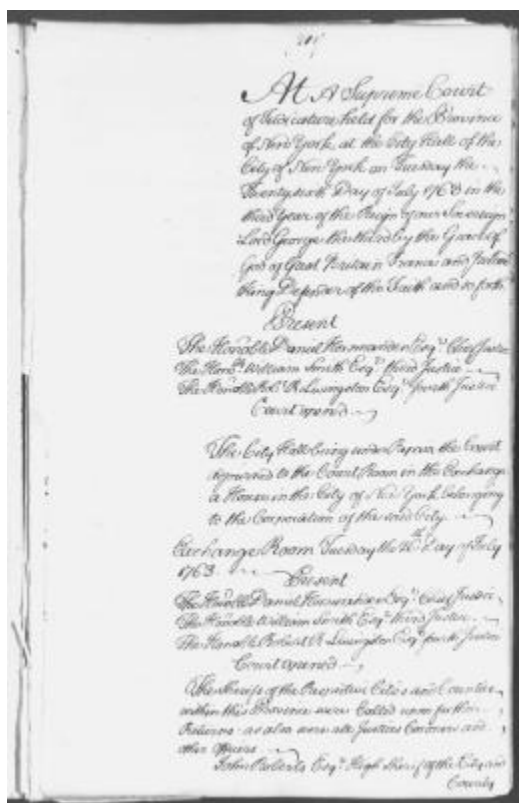 At A Supreme Court
of Judicature held for the Province
of New York at the City Hall of the
City of New York on Tuesday the
Twenty sixth Day of July 1763 in the
third Year of the Reign of our Sovereign
Lord George the third by the Grace of
God of Great Britain France and Ireland
King Defender of the Faith and so forth
Present
The Honble Daniel Horsmanden Esqr. Chief Justice
The Honble William Smith Esqr. third Justice
The Honble Robt. R. Livingston Esqr. fourth Justice
Court opened
The City Hall being under Repair the Court
adjourned to the Court Room in the Exchange
a House in the City of New York belonging
to the Corporation of the said City
Exchange Room Tuesday the 26th Day of July
1763
Present
The Honble Daniel Horsmanden Esqr. Chief Justice
The Honble William Smith Esqr. third Justice
The Honble Robert R Livingston Esqr. fourth Justice
Court opened
The Sherifs of the Respective Cities and Counties
within this Province were Called upon for their
Returns as also were all Justices Coroners and
other Officers
John Roberts Esqr. High Sherif of the City and
County